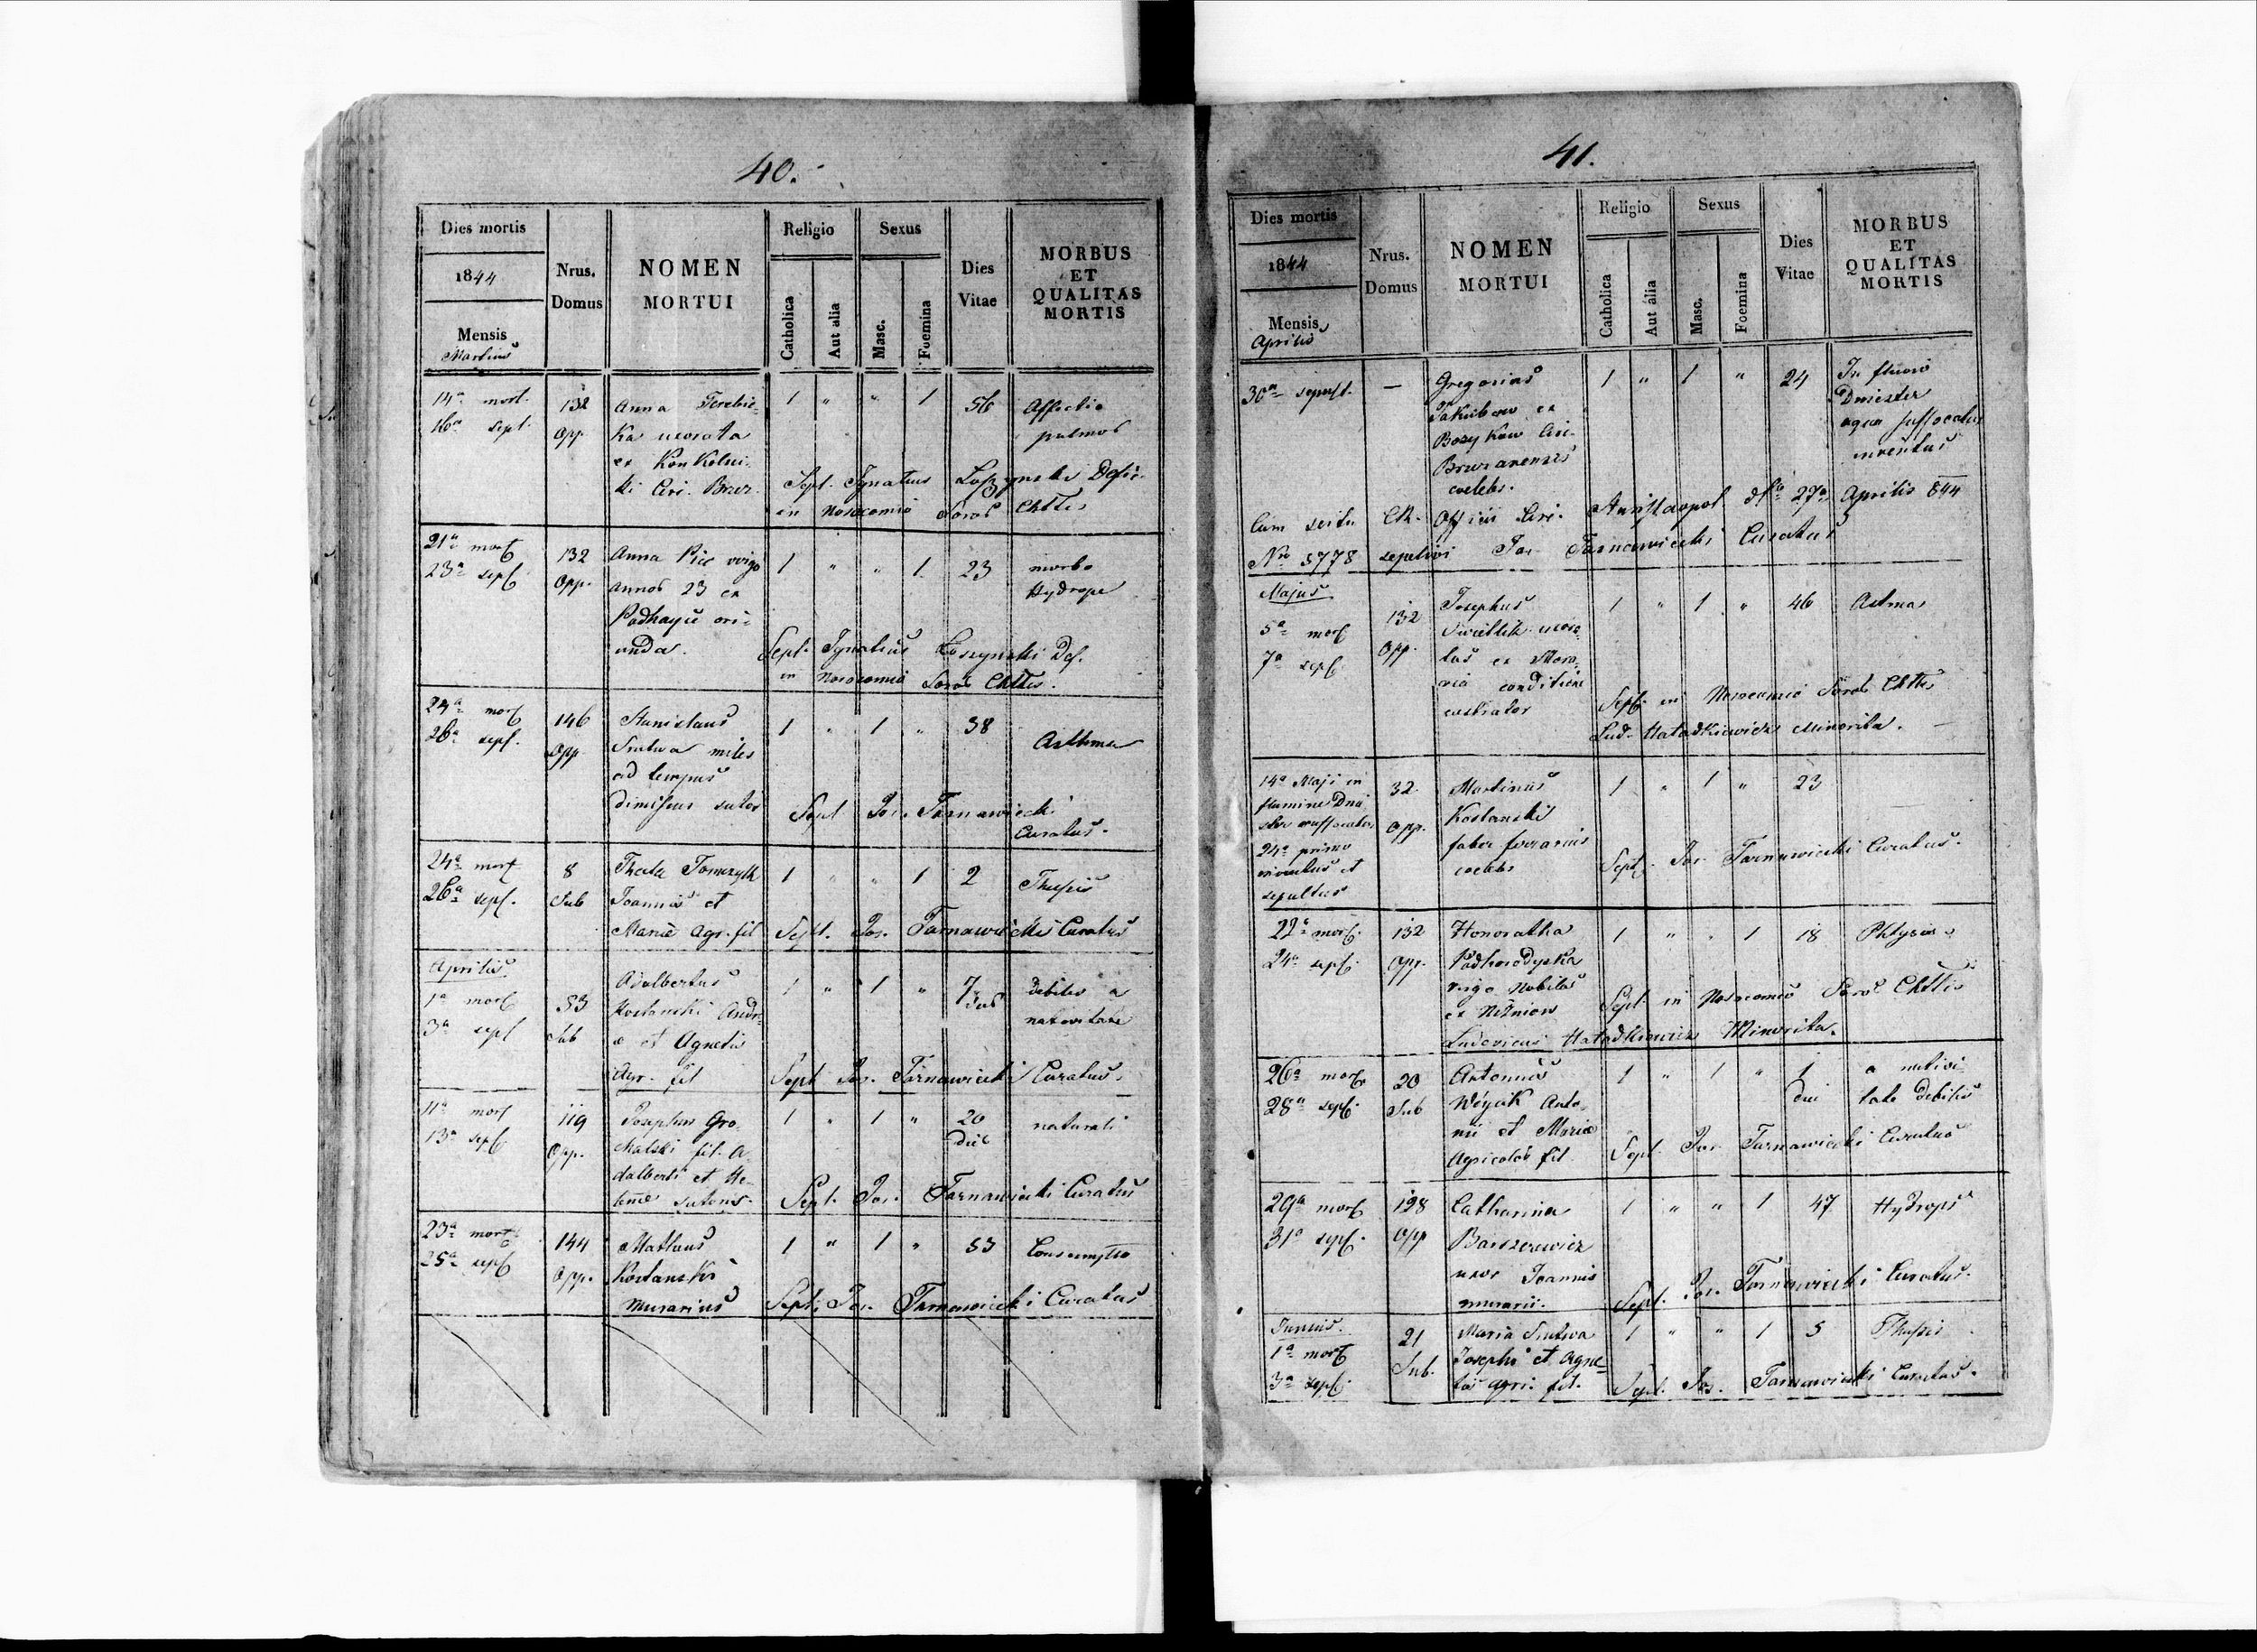 40.
Dies mortis
1844
Mensis
Martius
Nrus.
Domus
NOMEN
MORTUI
Religio
Catholica
Aut alia
Sexus
Masc.
Foemina
Dies
Vitae
MORBUS
ET
QUALITAS
MORTIS
14a mort. 132 Anna 1 " " 1 56 Affectio
16a sept. Opp. ka uxorata pulmo
Sept. Ignatius Defic.
in Nosocomio Soror Chttis
21a mort 132 Anna Pic virgo 1 " " 1 23 morbo
23a sept Opp. annos 23 ex Hydrope
Podhayce ori-
unda. Sept. Ignatius Def.
in Nosocomio Soror Chttis.
24a mort 146 Stanislaus 1 " 1 " 38 Asthma
26a sept. Opp miles
ad tempus
sutor Sept Jos. Tarnawiecki
Curatus.
24a mort 8 Thecla Tomczyk 1 " " 1 2 Thussis
26a sept. Sub Joannis et
Mariae Agr. fil Sept. Jos. Tarnawiecki Curatus
Aprilis Adalbertus 1 " 1 " 7 debilis a
1a mort 53 Kostanski Andre- nativitate
3a sept Sub ae et Agnetis
Agr. fil Sept Jos. Tarnawiecki Curatus.
11a mort 119 Josephus Gro- 1 " 1 " 20 naturali
13a sept Opp. fil. A- die
dalberti et He-
lenae sutoris. Sept. Jos. Tarnawiecki Curatus
23a mort 144 Matheus 1 " 1 " 53 Consumptio
25a sept Opp. Kostanski
murarius Sept. Jos. Tarnawiecki Curatus
41.
Dies mortis
1844
Mensis
Aprilis
Nrus.
Domus
NOMEN
MORTUI
Religio
Catholica
Aut alia
Sexus
Masc.
Foemina
Dies
Vitae
MORBUS
ET
QUALITAS
MORTIS
30a sepult. — Gregorius 1 " 1 " 24 In fluvio
Jakubow ex Dniester
aqua suffocatus
inventus
caelebs.
Cum scitu Officii 27a Aprilis 844
No 5778 sepelivi Jos. Tarnawiecki Curatus
Majus. Josephus 1 " 1 " 46 Astma
5a mort 132 uxora-
7a sept. Opp. tus ex Mora-
via conditione
castrator Sept. in Nosocomio Soror Chttis
Lud. Hatadkiewicz Minorita.
14a Maji in 32 Martinus 1 " 1 " 23
flumine Dnie- Kostanski
Opp. faber ferrarius
24a primo caelebs Sept. Jos. Tarnawiecki Curatus.
inventus et
sepultus
22a mort. 132 Honoratha 1 " " 1 18 Phtysis
24a sept. Opp. Podhorodyska
virgo Nobilis
ex Niżniow Sept. in Nosocomio Soror Chttis
Ludovicus Hatadkiewicz Minorita.
26a mort. 20 Antonius 1 " 1 " 1 a nativi-
28a sept. Sub Anto- tate debilis
nii et Maria
Agricolae fil. Sept. Jos. Tarnawiecki Curatus
29a mort 128 Catharina 1 " " 1 47 Hydrops
31a sept. Opp Barszczewicz
uxor Joannis
murarii. Sept. Jos. Tarnawiecki Curatus.
Junius. 21 Maria 1 " " 1 5 Thussis
1a mort Sub. Josephi et Agne-
3a sept. tis agri. fil. Sept. Jos. Tarnawiecki Curatus.